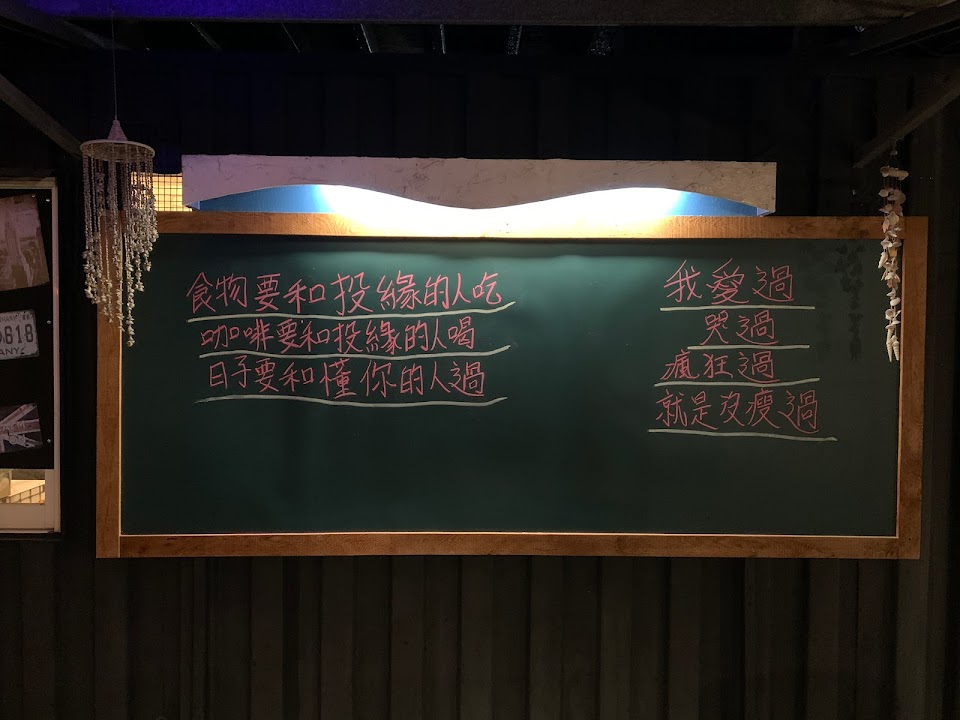 食物要和投緣的人吃
咖啡要和投緣的人喝
日子要和懂你的人過
我愛過
哭過
瘋狂過
就是沒瘦過
618
ANY